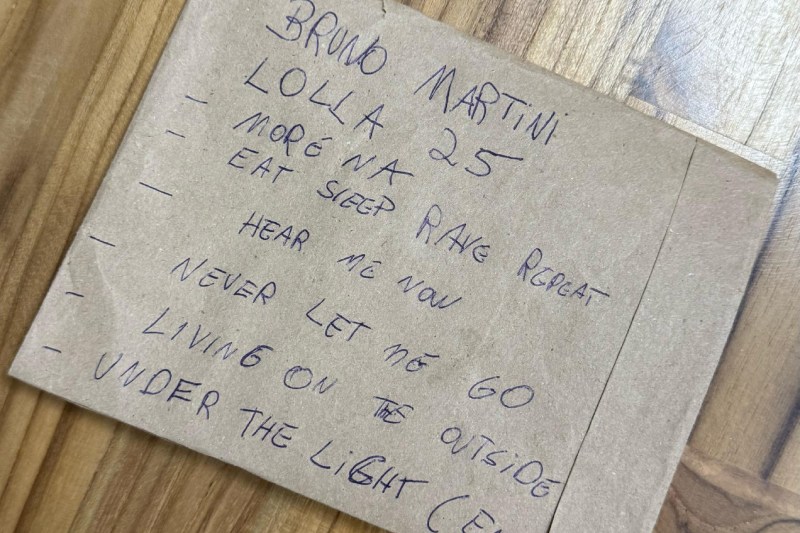 BRUNO MARTINI
LOLLA 25
- MORE NA
- EAT SLEEP RAVE REPEAT
- HEAR ME NOW
- NEVER LET ME GO
- LIVING ON THE OUTSIDE
- UNDER THE LIGHT